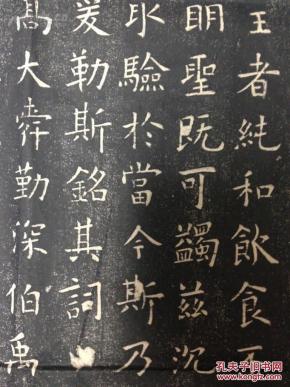 王者純和飲食不
明聖既可蠲茲沉
取驗於當今斯乃
爰勒斯銘其詞
高大舜勤深伯禹
孔夫子旧书网